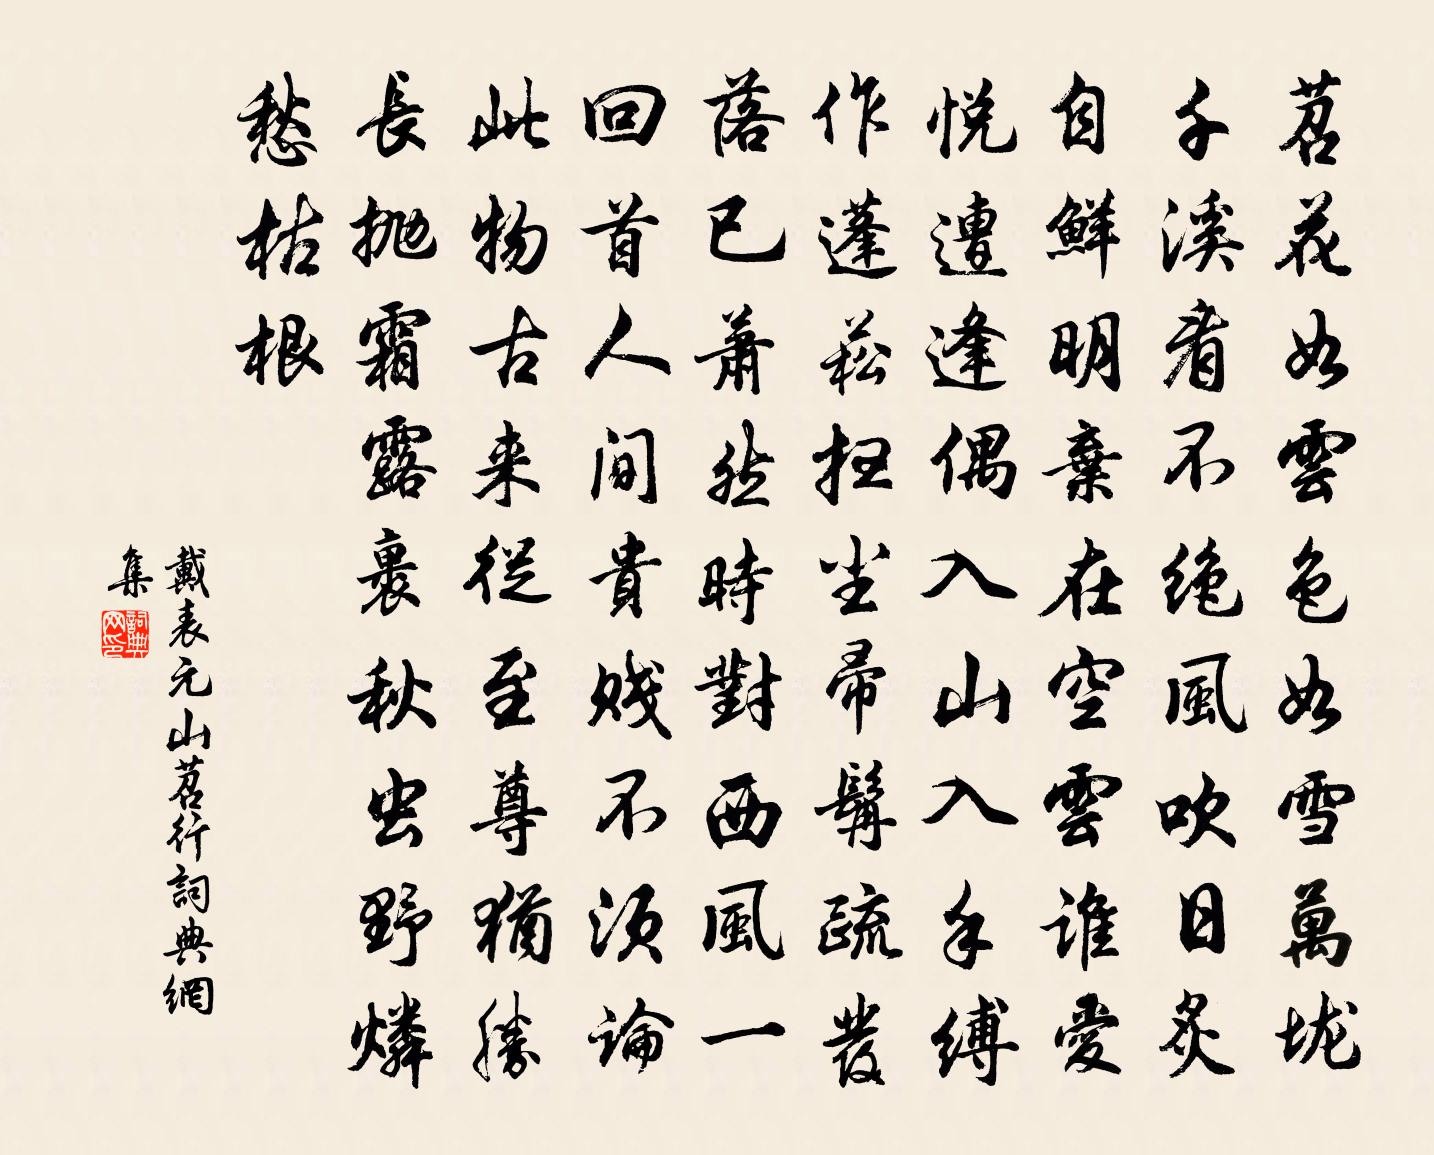 苕花如雲色如雪萬垅
千溪看不绝風吹日炙
自鮮明棄在空雲誰愛
悦遭逢偶入山入手縛
作蓬菘抂尘帚髯疏發
落已蕭然時對西風一
回首人間貴贱不须論
此物古来從至尊猶勝
長抛霜露裹秋虫野燐
愁枯根
戴表元山苕行詞典網
集
詞典
网印